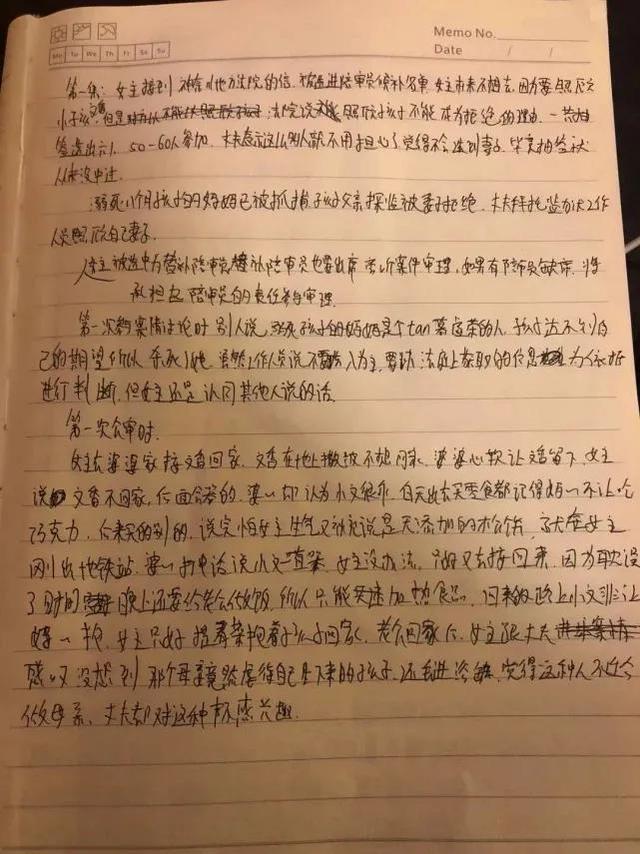 Memo No.
Date / /
Mo Tu We Th Fr Sa Su
第一集：女主接到 地方法院的信，被选进陪审员候补名单，女主本来不想去，因为要照顾
小孩文香，但是 法院说 照顾孩子不能成为拒绝的理由，一共抽
签选出六人，50-60人参加，丈夫表示这么多人就不用担心了觉得不会选到妻子，毕竟抽签从
从来没中过
溺死八个月孩子的妈妈已被抓捕，孩子父亲探监被妻子拒绝，丈夫拜托监方工作
人员照顾自己妻子。
女主被选中为替补陪审员，替补陪审员也要出席旁听案件审理，如果有陪审员缺席，将
承担起陪审员的责任参与审理。
第一次的案情讨论时 别人说，溺死孩子的妈妈是个tan慕虚荣的人，孩子达不到自
己的期望所以杀死了她，虽然工作人员说不要先入为主，要以法庭上获取的信息为依据
进行判断，但女主还是认同其他人说的话。
第一次公审时，
女主去婆婆家接文香回家，文香在地上撒泼不想回家，婆婆心软让文香留下，女主
说 文香不回家，后面会 的，婆婆却认为小文很乖，白天出去买零食都记得妈妈不让吃
巧克力，后来买的别的，说完怕女主生气又被说说是无添加的 饼，了 女主
刚出地铁站，婆婆打电话说小文一直哭，女主没办法，只好又去接回来，因为耽误
了时间 晚上还要给老公做饭，所以只能买速加热食品，回来的路上小文非让
妈妈抱，女主只好提着菜抱着孩子回家，老公回家后，女主跟丈夫
感叹 没想到 那个母亲竟然虐待自己生下来的孩子，还 进浴缸，觉得这种人不适合
做母亲，丈夫却对这种不感兴趣。